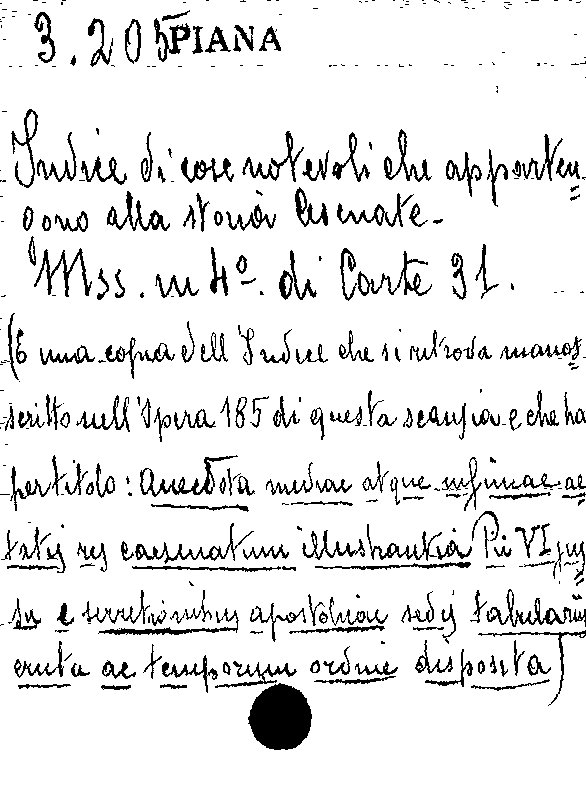 3.205 PIANA
Indice di cose notevoli che apparten=
gono alla storia Cesenate.
Mss. in 4º. di Carte 31.
(È una copia dell'Indice che si ritrova manos=
scritto nell'Opera 185 di questa scansia e che ha
per titolo: Anecdota mediae atque infimae ae
tatis res caesenatum illustrantia Pii VI jus=
su e secretioribus apostolicae sedis tabulariis
eruta ac temporum ordine disposita)